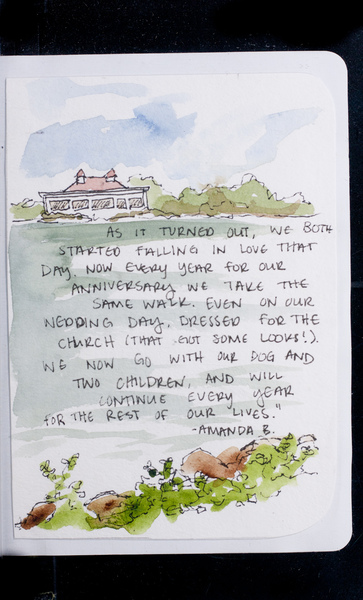 AS IT TURNED OUT, WE BOTH
STARTED FALLING IN LOVE THAT
DAY. NOW EVERY YEAR FOR OUR
ANNIVERSARY WE TAKE THE
SAME WALK. EVEN ON OUR
WEDDING DAY, DRESSED FOR THE
CHURCH (THAT GOT SOME LOOKS!).
WE NOW GO WITH OUR DOG AND
TWO CHILDREN, AND WILL
CONTINUE EVERY YEAR
FOR THE REST OF OUR LIVES."
-AMANDA B.